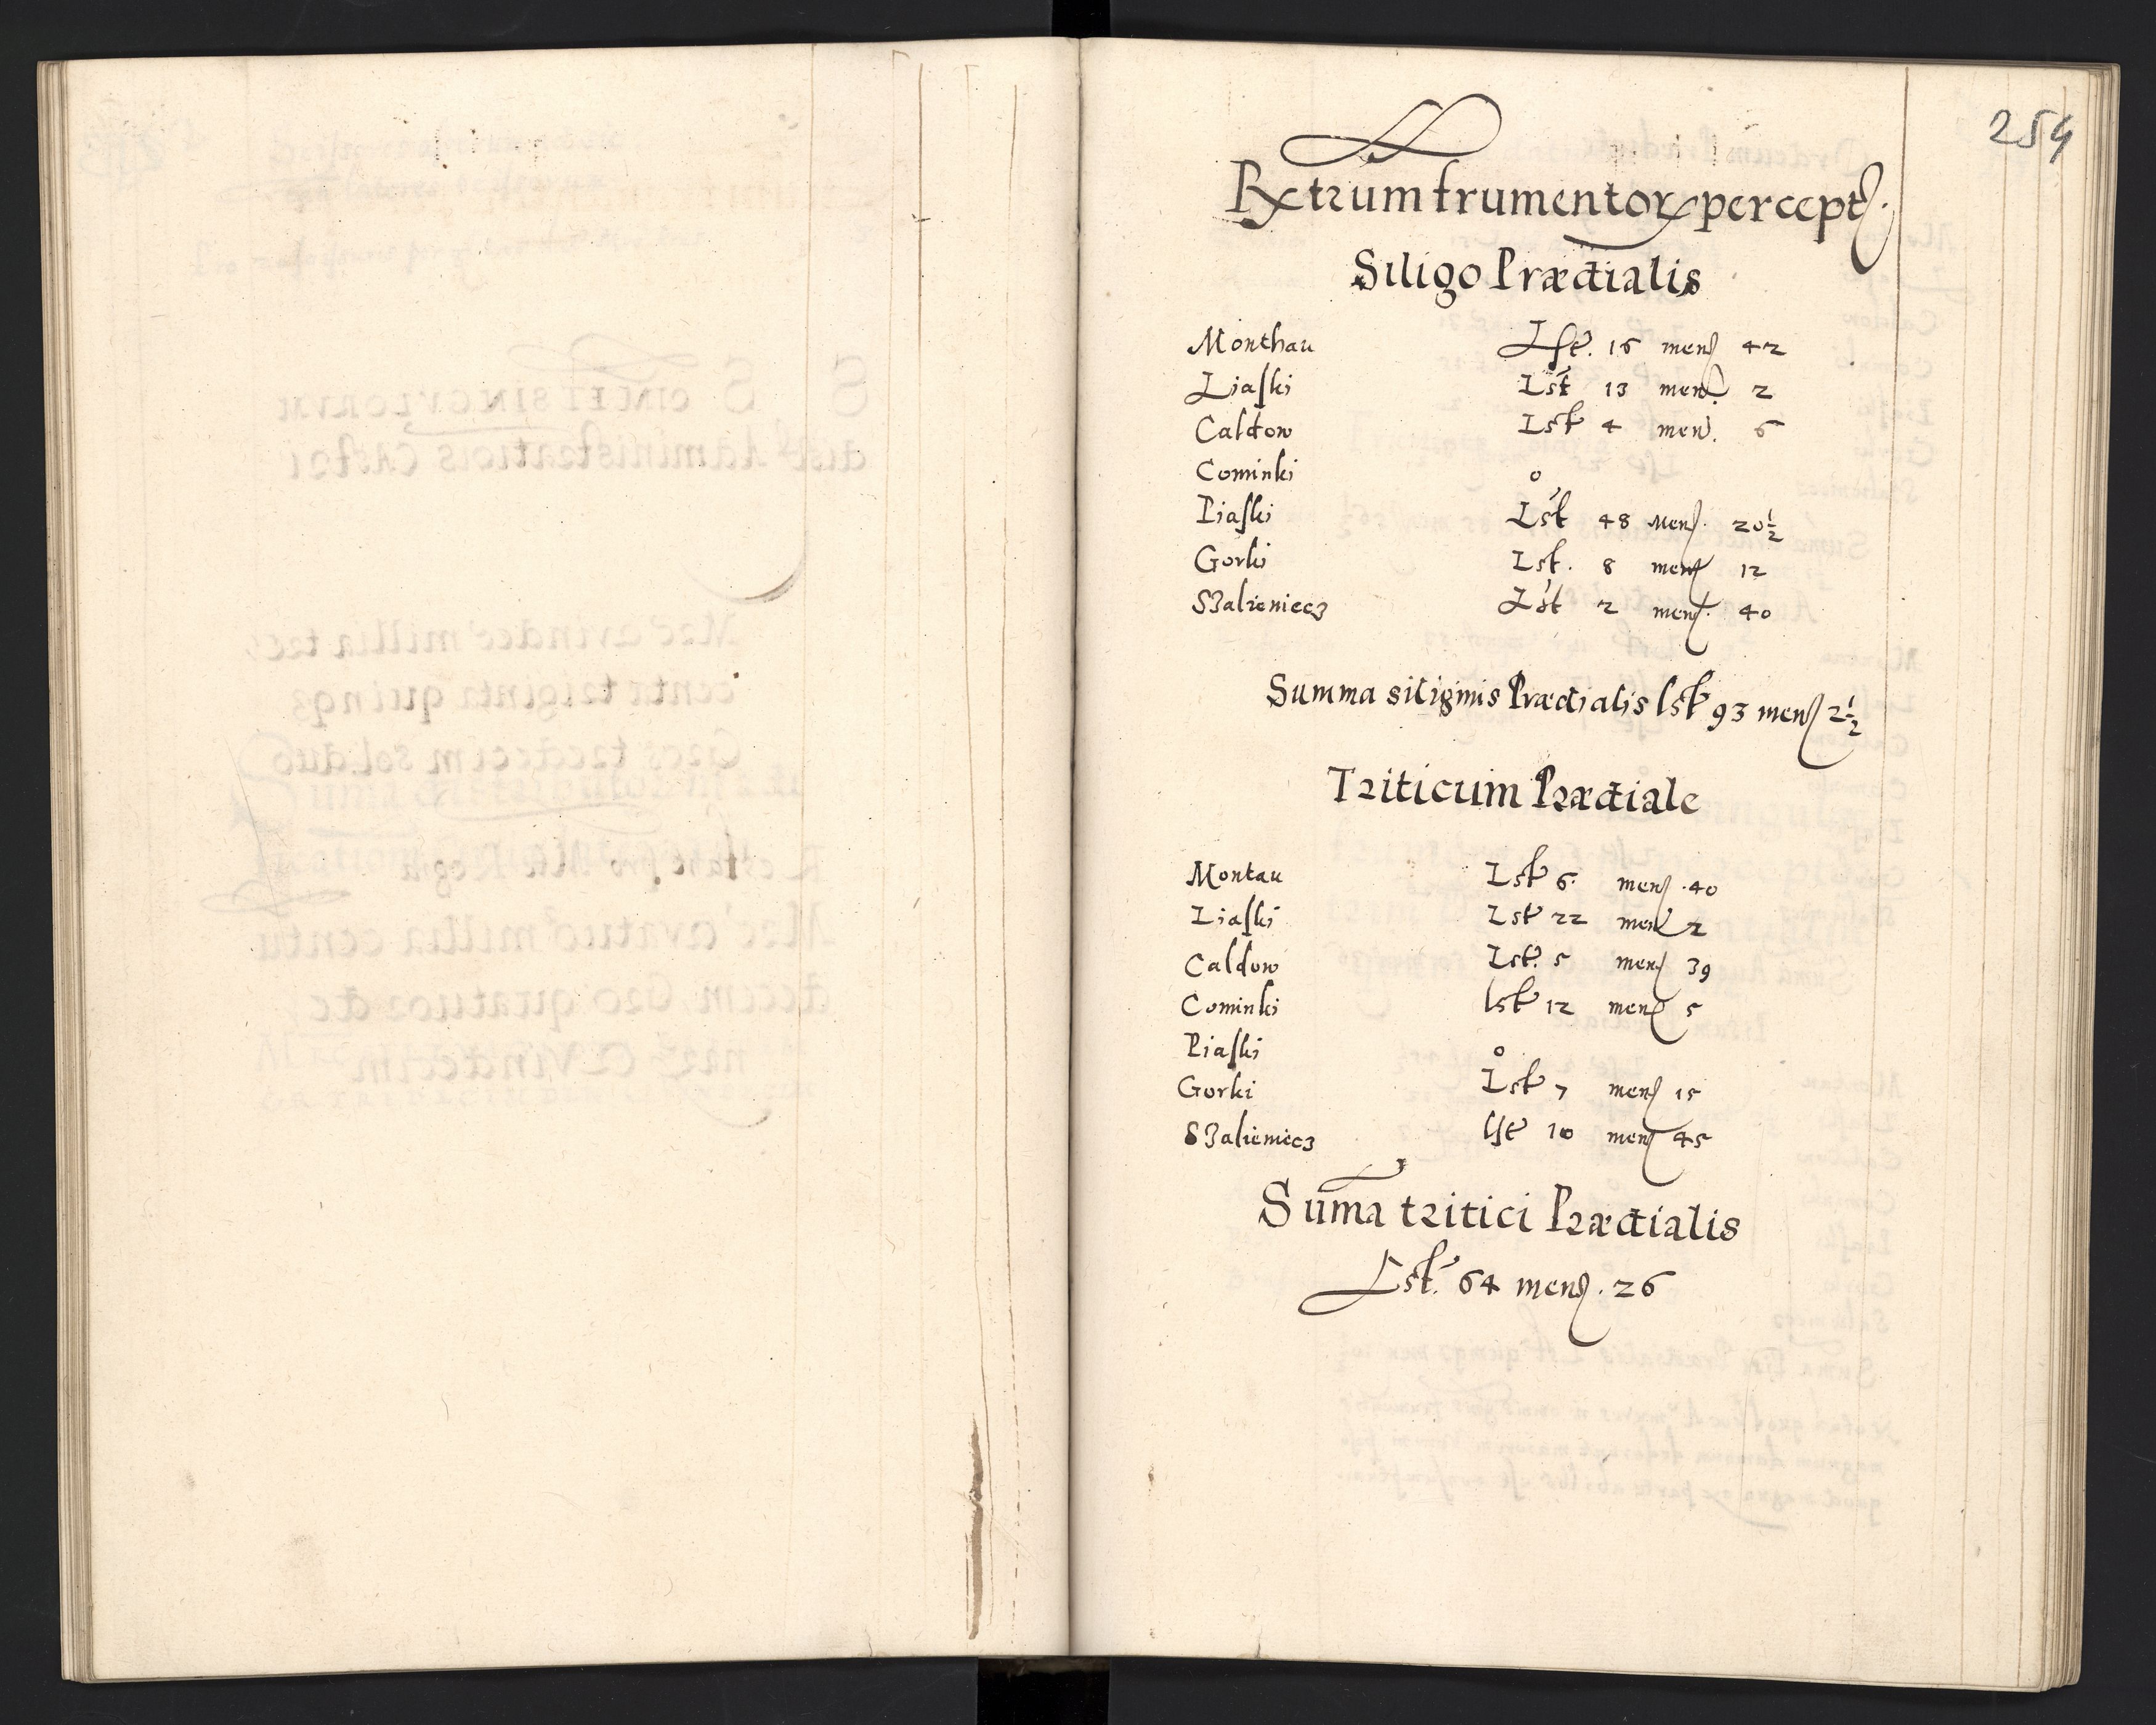 254
Rxtrum frumentoꝝ percept.
Siligo Prædialis
Monthau Lst. 16 mens 42
Liaſki Lst 13 mens. 2
Caldow Lst 4 men. 6
Cominki 0
Piaſki Lst 48 mens. 20 1/2
Gorki Lst. 8 mens 12
Szalieniecz Lst 2 mens. 40
Summa siliginis Prædialis lst 93 mens 2 1/2
Triticum Prædiale
Montau Lst 6 mens. 40
Liaſki Lst 22 mens 2
Caldow Lst. 5 mens 39
Cominki lst 12 mens 5
Piaſki 0
Gorki Lst 7 mens 15
Szalieniecz lst 10 mens 45
Suma tritici Prædialis
Lst. 64 mens. 26